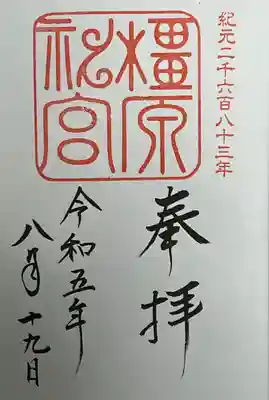 紀元二千六百八十三年
橿原
神宮
奉拝
令和五年
八月十九日